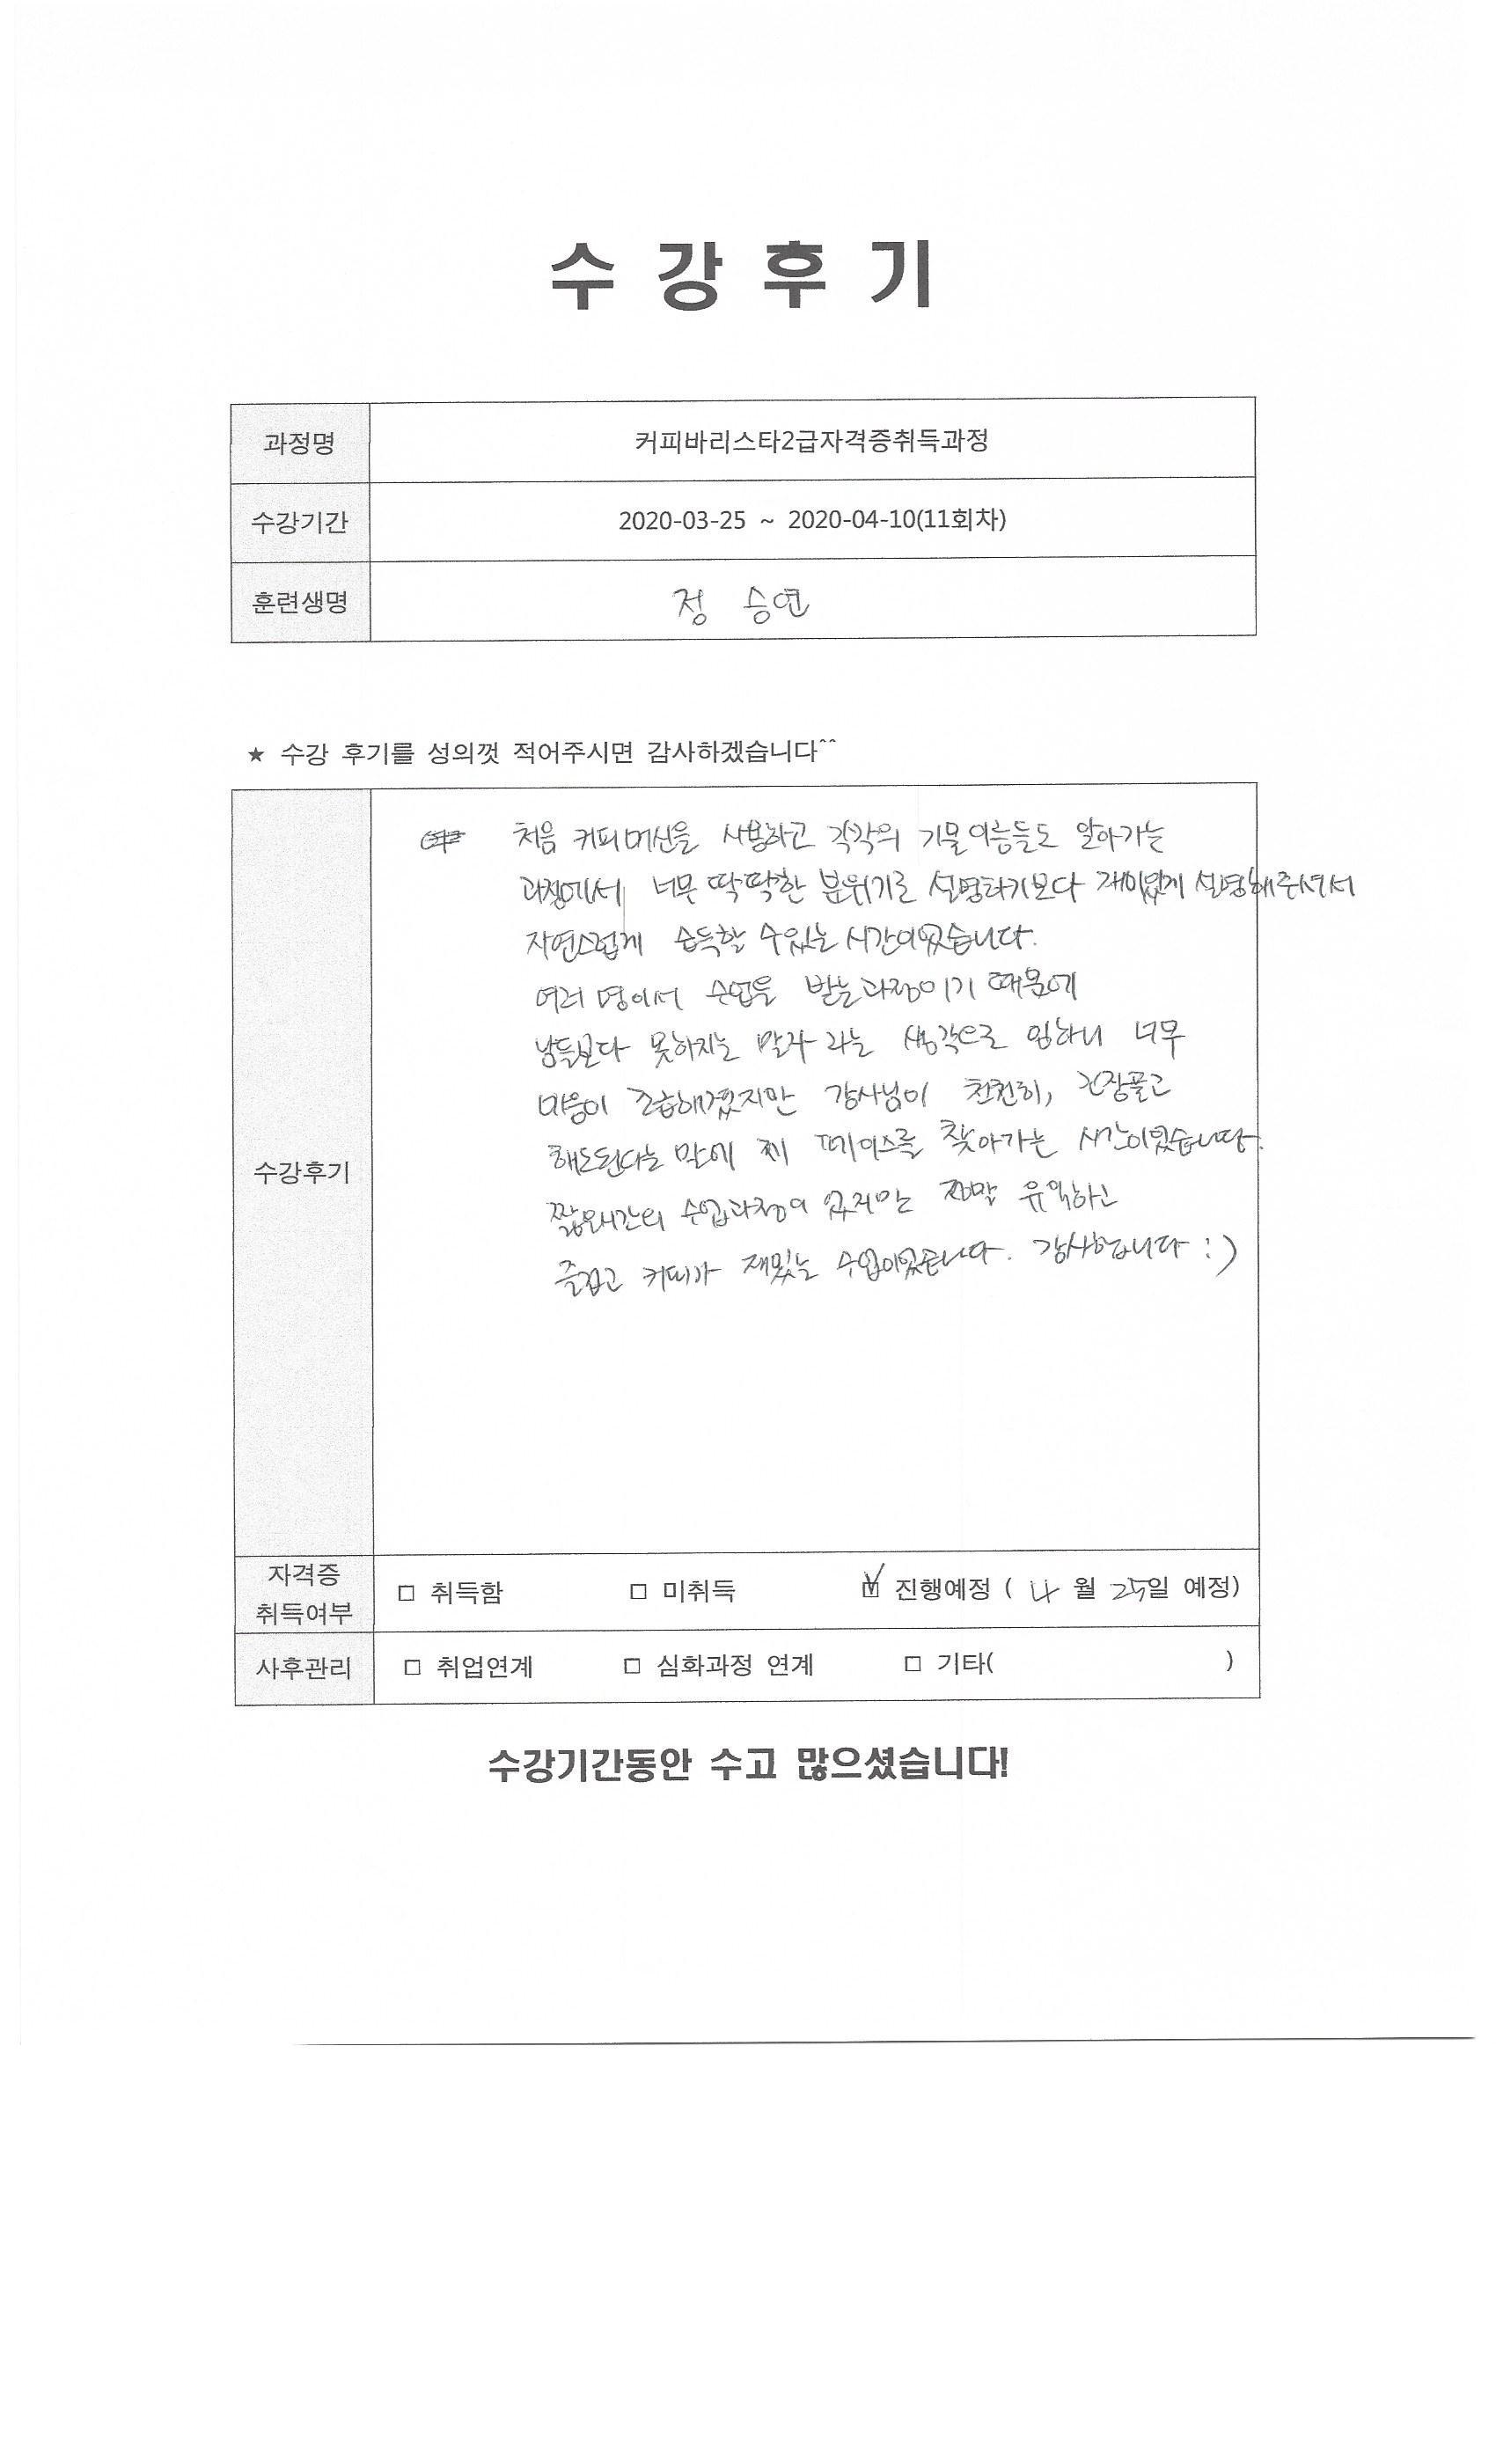 수 강 후 기
과정명 커피바리스타2급자격증취득과정
수강기간 2020-03-25 ~ 2020-04-10(11회차)
훈련생명 정 승연
★ 수강 후기를 성의껏 적어주시면 감사하겠습니다^^
처음 커피머신을 사용하고 각각의 기물이름들도 알아가는
과정에서 너무 딱딱한 분위기로 설명하기보다 재미있게 설명해주셔서
자연스럽게 습득할 수있는 시간이였습니다.
여러 명이서 수업을 받는과정이기 때문에
남들보다 못하지는 말자 라는 생각으로 임하니 너무
마음이 조급해졌지만 강사님이 천천히, 긴장풀고
해도된다는 말에 제 페이스를 찾아가는 시간이였습니다.
수강후기
짧은 수업과정이 였지만 정말 유익하고
즐겁고 커피가 재밌는 수업이였습니다. 감사합니다 :)
자격증
취득여부
□ 취득함 □ 미취득 ☑ 진행예정 ( 4 월 25일 예정)
사후관리 □ 취업연계 □ 심화과정 연계 □ 기타( )
수강기간동안 수고 많으셨습니다!